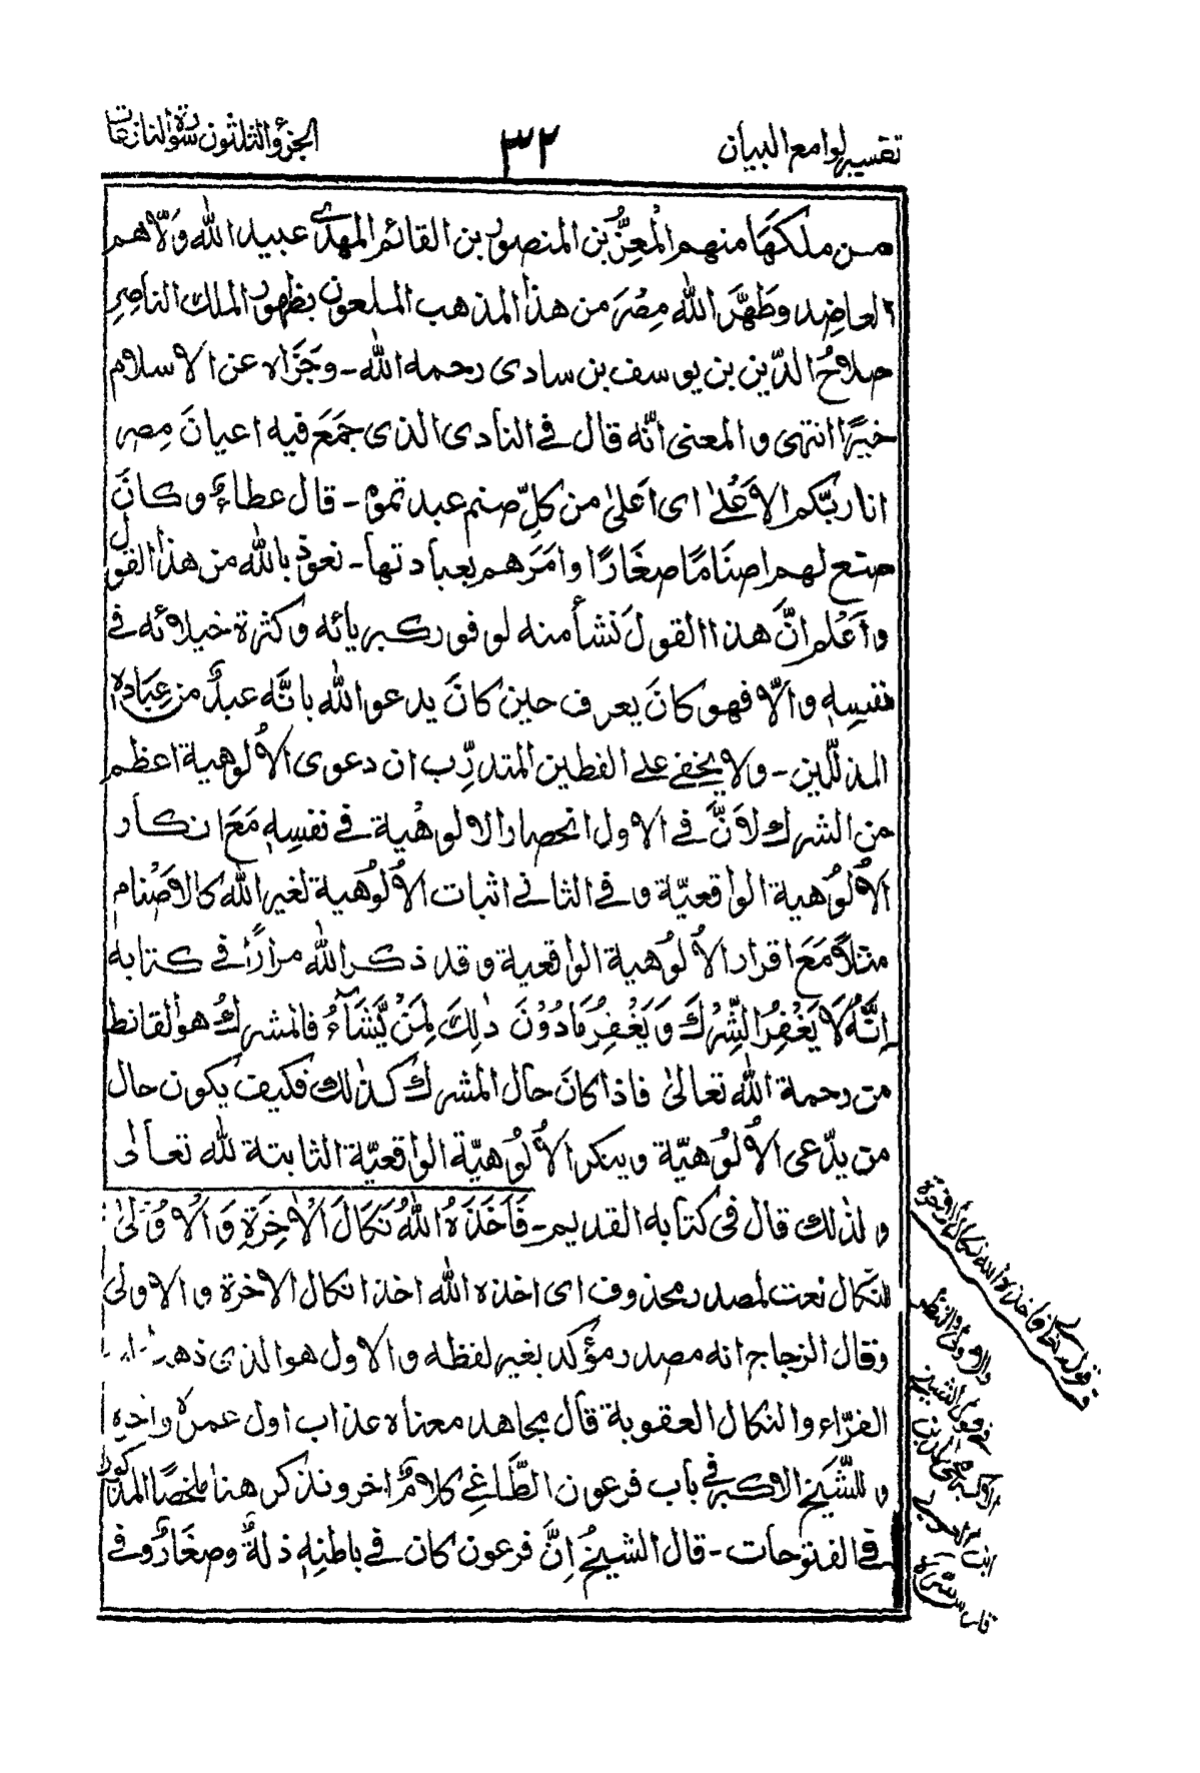 تفسير لوامع البيان
٣٢
الجزؤ الثلثون سورة والنازعات
من ملكهَا منهم الْمُعِزُّ بن المنصور بن القائم المهدىّ عبيد الله وَلّاهم
العاضِد وطَهَّرَ الله مِصْرَ من هذا المذهب الملعون بظهور الملك الناصِرِ
صلاحُ الدّين بن يوسف بن سادى رحمه الله ـ وجَزَاه عن الاسلام
خيرًا انتهى و المعنى انّه قال فى النادى الذى جمَعَ فيه اعيانَ مِصر
انا ربّكم الاَعْلىٰ اى اَعلىٰ من كلِّ صنم عبد تموه ـ قال عطاءٌ و كانَ
صنع لهم اصنَامًا صغَارًا وامَرَهم بعبادتها ـ نعوذ بالله من هذا القول
واَعْلم انَّ هذا القولَ نَشأ منه لوفور كبريائه و كثرة خيلائه فى
نفسِهٖ و الّا فهو كانَ يعرف حين كانَ يدعو الله بانَّه عبدٌ من عِبَادِهِ
المذلّلين ـ ولا يخفى على الفطين المتدرِّب ان دعوى الاُلوهية اعظم
من الشرك لاَنَّ فى الاول انحصار الالوهْية فى نفسِهٖ مَعَ انكار
الاُلوُهية الواقعيّة و فى الثانى اثبات الاُلوُهية لغير الله كالاَصْنام
مثلاً مَعَ اقرار الاُلوُهية الواقعية و قد ذكر الله مرارًا فى كتابه
اِنَّهُ لَا يَغْفِرُ الشِّرْكَ وَ يَغْفِرُ مَا دُوْنَ ذٰلِكَ لِمَنْ يَّشَآءُ فالمشركُ هو القانط
من رحمة الله تعالىٰ فاذا كانَ حال المشرك كذلك فكيف يكون حال
من يدّعى الاُلوُهيّة و ينكر الاُلوُهيّة الواقعيّة الثابتة لله تعالىٰ
و لذلك قال فى كتابه القديم ـ فَاَخَذَهُ اللهُ نَكَالَ الْاٰخِرَةِ وَ الْاُوْلىٰ
للنكال نعت لمصدر محذوف اى اخذه الله اخذا نكال الاخرة و الاولى
وقال الزجاج انه مصدر مؤكد بغير لفظه و الاول هو الذى
الفرّاء والنكال العقوبة قال مجاهد معناه عذاب اول عمره واخِرِه
و للشَّيخ الاكبر فى باب فرعون الطَّاغى كلامٌ اخر و نذكر هنا ملخصًا المذكور
فى الفتوحات ـ قال الشيخُ اِنَّ فرعون كان فى باطنِهٖ ذلةٌ وصغَارٌ و فى
قوله تعالى فاخذه الله نكال الاخرة
والاولى
فى قول الشيخ
الاكبر محى الدين
ابن العربى
قدس سره